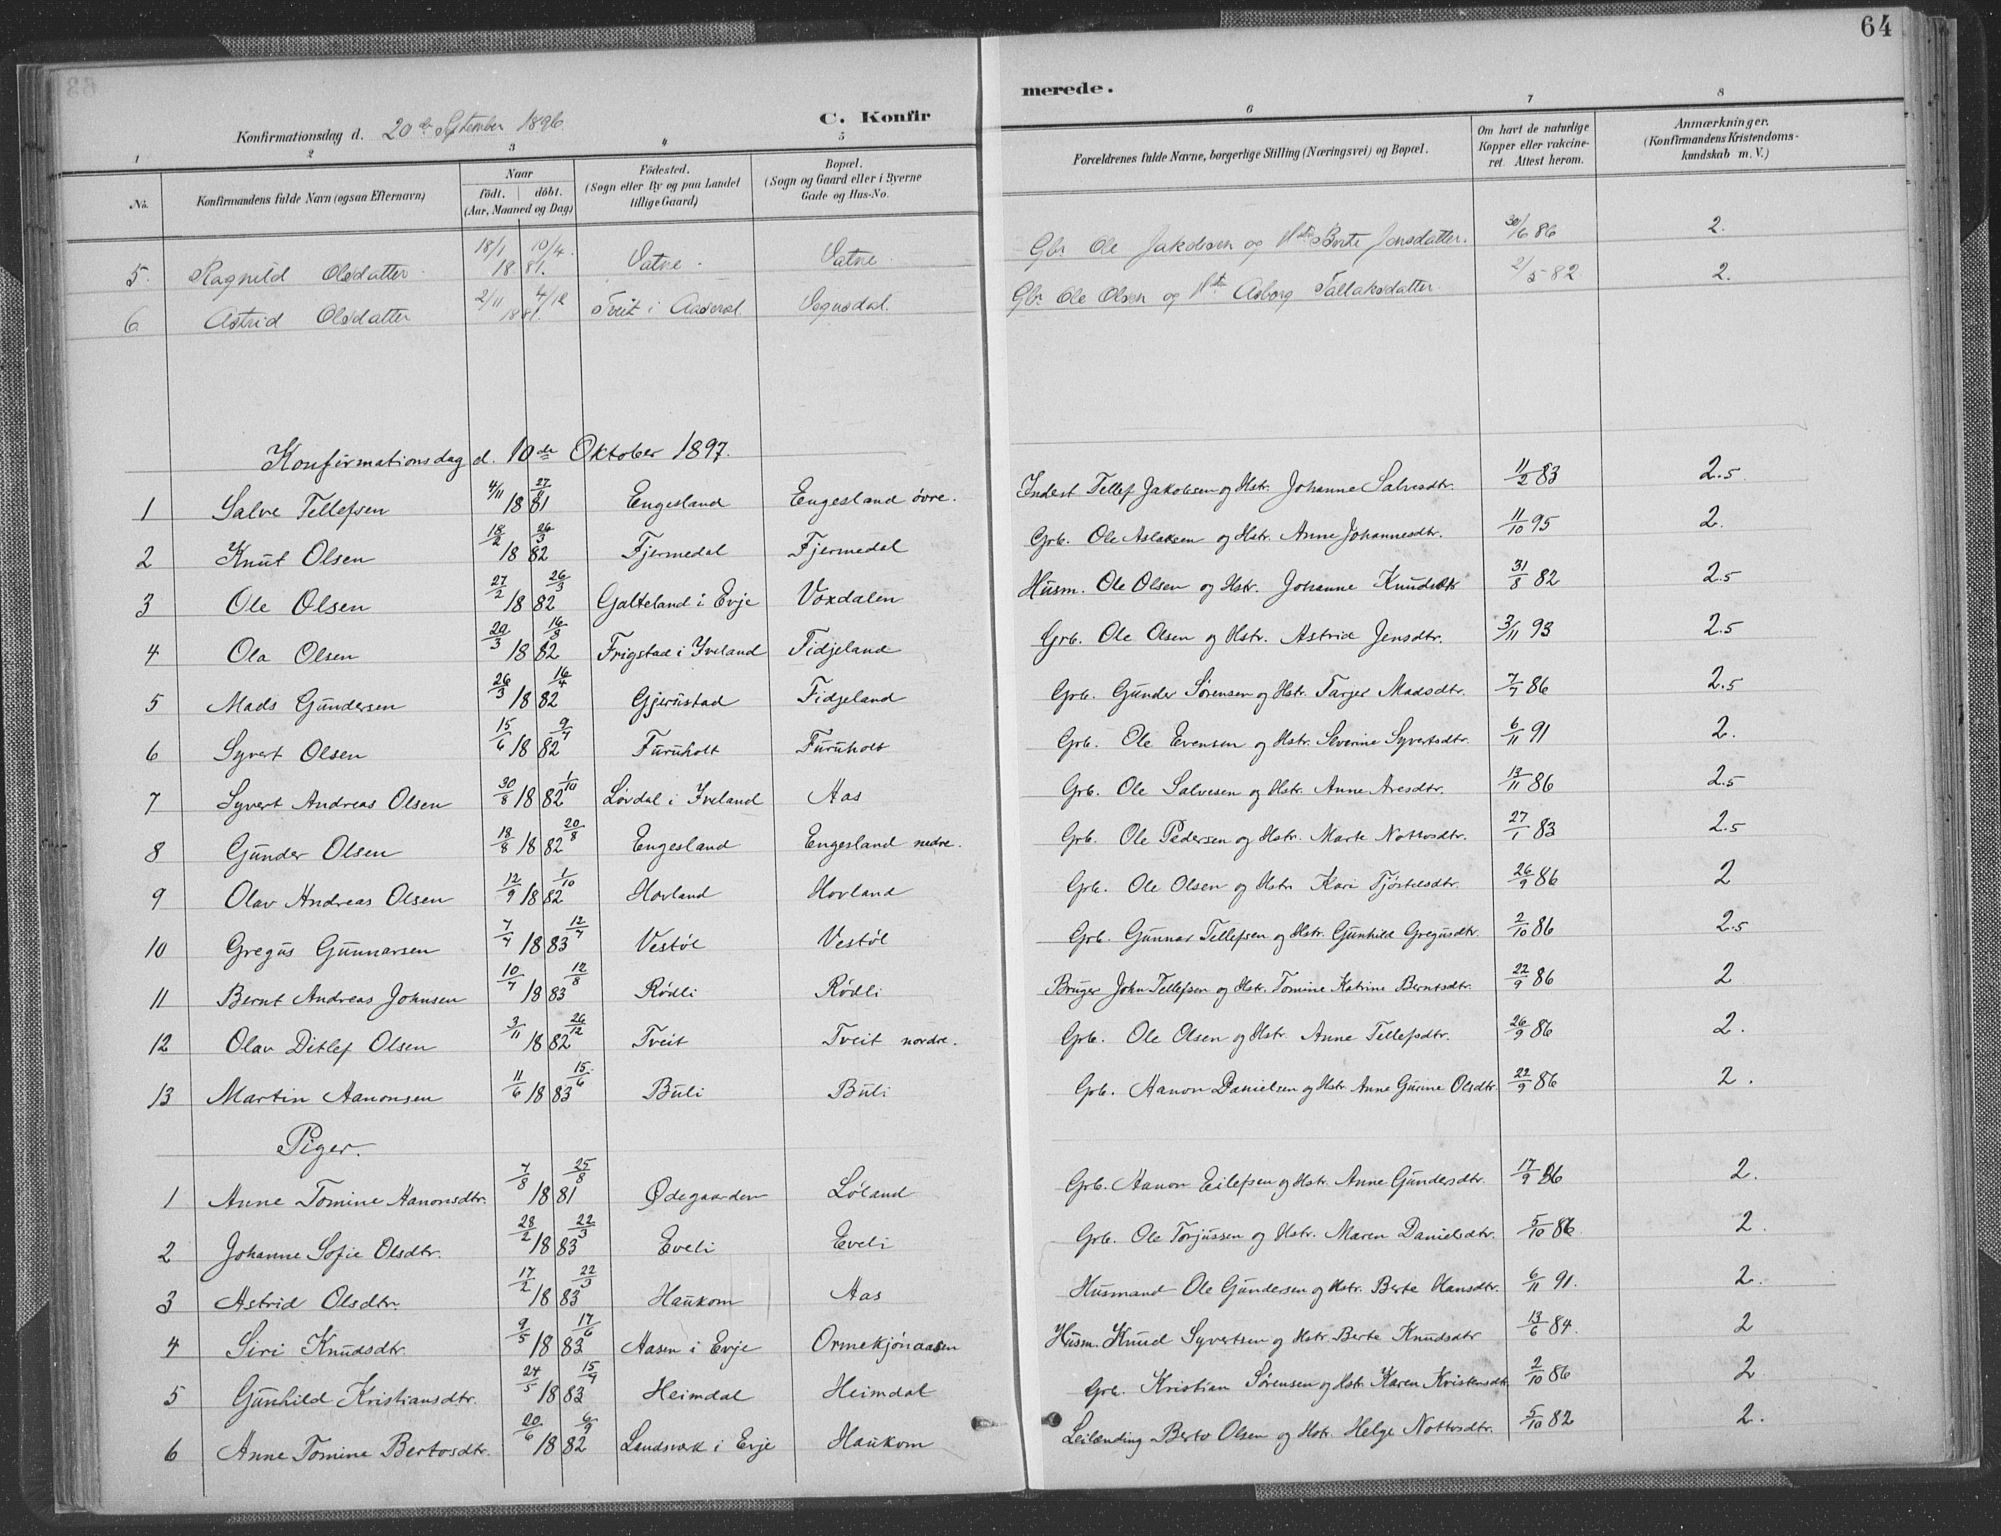 64
Konfirmationsdag d. 20de September 1896
C. Konfir
merede.
1 2 3 4 5 6 7 8
No. Konfirmandens fulde Navn (ogsaa Efternavn) Naar födt. döbt. (Aar, Maaned og Dag) Födested. (Sogn eller By og paa Landet tillige Gaard) Bopæl. (Sogn og Gaard eller i Byerne Gade og Hus-No. Forældrenes fulde Navne, borgerlige Stilling (Næringsvei) og Bopæl. Om havt de naturlige Kopper eller vakcineret. Attest herom. Anmærkninger. (Konfirmandens Kristendomskundskab m. V.)
5. Ragnild Olsdatter 18/1 10/4 1881. Vatne Vatne Gbr. Ole Jakobsen og Hstr Berte Jensdatter. 30/6 86 2.
6. Astrid Olsdatter 2/11 4/12 1881. Tveit i Aaseral. Ognsdal. Gbr. Ole Olsen og Hstr Asborg Tallaksdatter 2/5 82 2.
Konfirmationsdag d. 10de Oktober 1897.
1 Salve Tellefsen 4/11 27/11 1881 Engesland Engesland övre. Inderst Tellef Jakobsen og Hstr. Johanne Salvesdtr. 11/2 83 2.5
2 Knut Olsen 18/2 26/3 1882 Fjermedal Fjermedal Grb. Ole Aslaksen og Hstr. Anne Johannesdtr. 11/10 95 2.
3 Ole Olsen 27/2 26/3 1882 Galteland i Evje Voxdalen Husm. Ole Olsen og Hstr. Johanne Knudsdtr 31/8 82 2.5
4 Ola Olsen 20/3 16/8 1882 Frigstad i Iveland Fidjeland Grb. Ole Olsen og Hstr. Astrid Jensdtr. 3/11 93 2.5
5 Mads Gundersen 26/3 16/4 1882 Gjerustad Fidjeland Grb. Gunder Sørensen og Hstr. Tarjer Madsdtr. 7/7 86 2.5
6 Syvert Olsen 15/6 9/7 1882 Furuholt Furuholt Grb. Ole Evensen og Hstr. Severine Syvertsdtr. 6/11 91 2.
7 Syvert Andreas Olsen 30/8 1/10 1882 Løvdal i Iveland Aas Grb. Ole Salvesen og Hstr. Anne Aresdtr. 13/11 86 2.5
8 Gunder Olsen 18/8 20/8 1882 Engesland Engesland nedre. Grb. Ole Pedersen og Hstr. Marte Nottosdtr. 27/1 83 2.5
9 Olav Andreas Olsen 12/9 1/10 1882 Hovland Hovland Grb. Ole Olsen og Hstr Kari Tjöstelsdtr. 26/9 86 2
10 Gregus Gunnarsen 7/7 12/7 1883 Vestöl Vestöl Grb. Gunnar Tellefsen og Hstr. Gunhild Gregusdtr. 2/10 86 2.5
11 Bernt Andreas Johnsen 10/7 12/8 1883 Rödli Rödli Bruger John Tellefsen og Hstr. Tomine Katrine Berntsdtr. 22/9 86 2
12 Olav Ditlef Olsen 3/11 26/12 1882 Tveit Tveit nordre. Grb. Ole Olsen og Hstr. Anne Tellefsdtr. 26/9 86 2.
13 Martin Aanonsen 11/6 15/6 1883 Buli Buli Grb. Aanon Danielsen og Hstr. Anne Gurine Olsdtr 22/9 86 2.
Piger.
1 Anne Tomine Aanonsdtr. 7/8 25/8 1881 Ødegaarden Løland Grb. Aanon Eilefsen og Hstr. Anne Gundersdtr. 17/9 86 2.
2 Johanne Sofie Olsdtr. 28/2 22/3 1883 Eveli Eveli Grb. Ole Torjussen og Hstr. Maren Danielsdtr. 5/10 86 2.
3 Astrid Olsdtr. 17/2 22/3 1883 Haukom Aas Husmand Ole Gundersen og Hstr. Berte Hansdtr. 6/11 91. 2.
4 Siri Knudsdtr. 9/5 17/6 1883 Aasen i Evje Ormekjönaasen Husm. Knud Syvertsen og Hstr. Berte Knudsdtr 13/6 84. 2
5 Gunhild Kristiansdtr. 24/5 15/7 1883 Heimdal Heimdal Grb. Kristian Sørensen og Hstr. Karen Kristensdtr. 2/10 86 2
6 Anne Tomine Bertosdtr. 20/6 6/9 1882 Landsværk i Evje Haukom Leilænding Berto Olsen og Hstr. Helge Nottosdtr. 5/10 82 2.